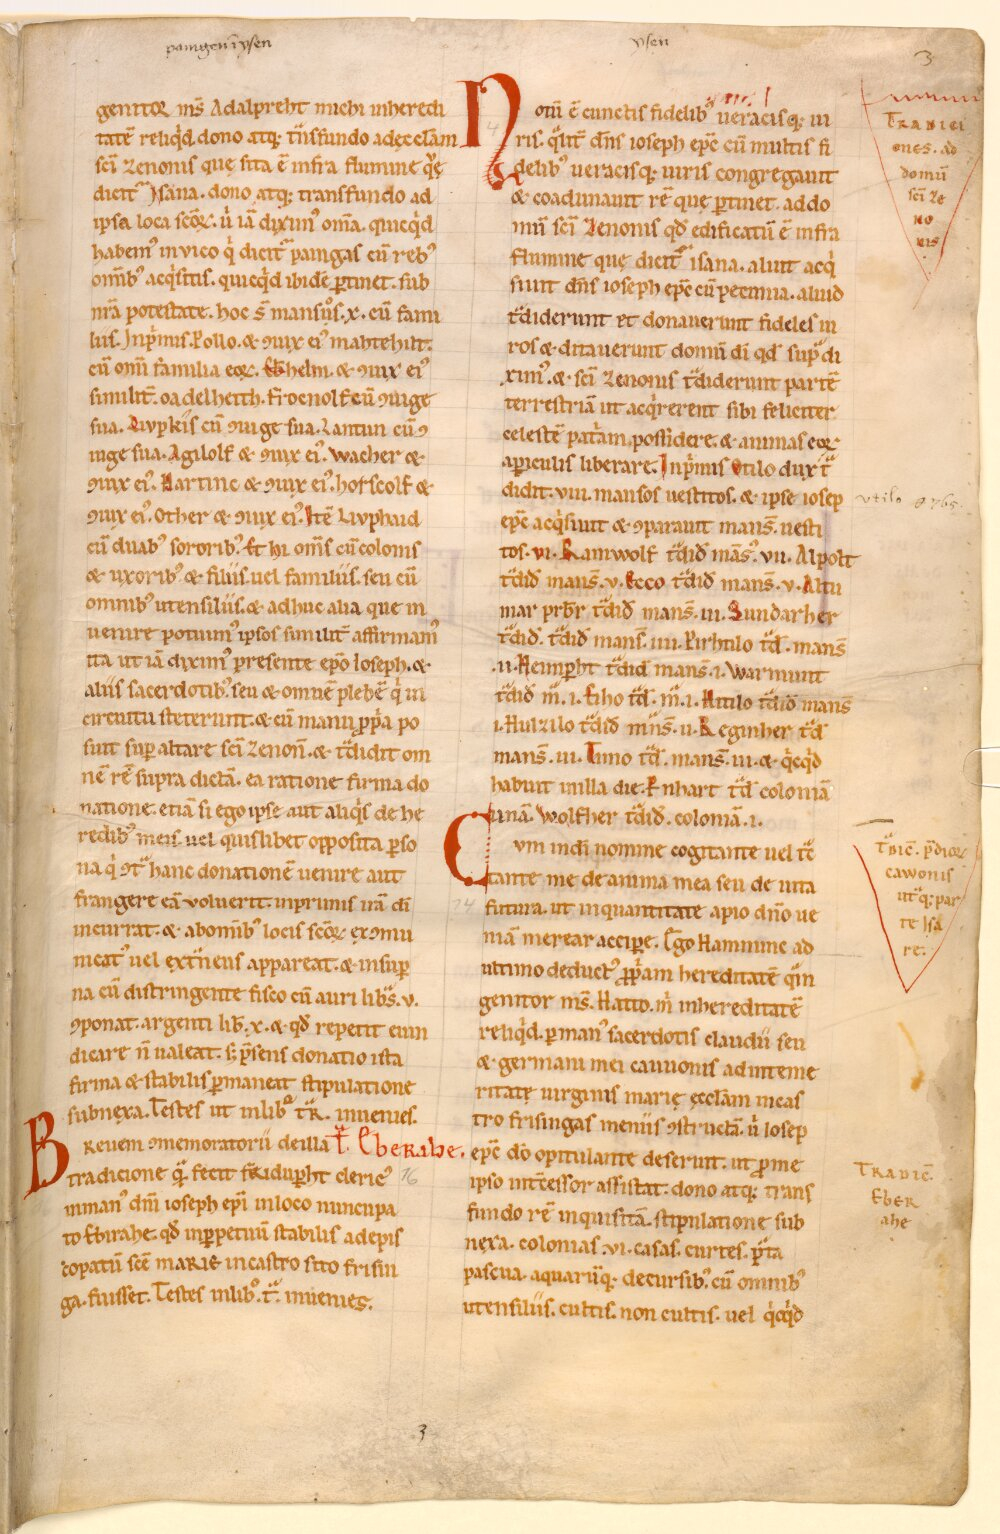 paingen ī ysen
ysen
3
genitor̨ ms̄ Adalpreht michi inheredi
tatē reliq̇d. dono atq; tͣnsfundo adęcclām
sc̄i Zenonis quę sita ē infra flumine q̇ę
dicit᷑ Isana. dono atq; transfundo ad
ipsa loca scōꝝ. u̇ iā diximꝰ om̄a. quicq̇d
habemꝰ inuico q̇ dicit᷑ paingas cū rebꝰ
om̄ibꝰ acq̇sitis. quicq̇d ibidē ꝑtinet. sub
nrā potestate. hoc s̄ mansuͦs. x. cū fami
liis. Inpͥmis. Pollo. & ꝯiux eiꝰ mahtehilt.
cū om̄i familia eoꝝ. Ekhelm. & ꝯiux eiꝰ
similit᷑. oadelheith. Froenolf cū ꝯiuge
sua. Liupkis cū ꝯiuge sua. Lantun cū ꝯ
iuge sua. Agilolf & ꝯiux eiꝰ. Wacher &
ꝯiux eiꝰ. Martinc & ꝯiux eiꝰ. hofscolf &
ꝯiux eiꝰ. Other & ꝯiux eiꝰ. Itē Liuphaid
cū duabꝰ sororibꝰ. Et hi om̄s cū colonis
& uxoribꝰ & filiis. uel familiis. seu cū
omnibꝰ utensiliis. & adhuc alia que in
uenire potuimꝰ ipsos similit᷑ affirmamꝰ
ita ut iā diximꝰ presente ep̄o Ioseph. &
aliis sacerdotibꝰ. seu & omnē plebē q̇ in
circuitu steterunt. & cū manu ꝓpͥa po
suit suꝑ altare sc̄i Zenon̄. & tͣdidit om
nē rē supra dictā. ea ratione firma do
natione. etiā si ego ipse aut aliq̇s de he
redibꝰ meis. uel quislibet opposita ꝑso
na q̇ ꝯtͣ hanc donationē uenire aut
frangere eā voluerit. inprimis irā dī
incurrat. & abom̄ibꝰ locis scōꝝ exꝯmu
nicatꝰ uel extͣneus appareat. & insuꝑ
na cū distringente fisco cū auri libͣs. v.
ꝯponat. argenti lib̄. x. & qd̄ repetit euin
dicare n̄ ualeat. s; p̄sens donatio ista
firma & stabilis ꝑmaneat stipulatione
subnexa. Testes ut inlibͦ tͣR. inuenies.
Breuem ꝯmemoratoriū deilla Tͣ Eberahe.
tradicione qͣ fecit friduꝑht clericꝰ
16
inmanꝰ dn̄i ioseph ep̄i inloco nuncupa
to Ebirahe. qd̄ inꝑpetuū stabilis adepis
copatū scē marie incastro sito frisin
ga. fuisset. Testes inlibͦ. tͣ. inuenies.
Notū ē cunctis fidelibꝰ ueracisq; ui
4
ris. qͣlit᷑ dn̄s ioseph ep̄c cū multis fi
delibꝰ ueracisq; uiris congregauit
& coadunauit rē que ꝑtinet. addo
mū sc̄i Zenonis qd̄ edificatū ē infra
flumine que dicit᷑ isana. aliut acq̇
siuit dn̄s ioseph ep̄c cū pecunia. aliud
tͣdiderunt et donauerunt fideles ui
ros & ditauerunt domū dī qd̄ supͣ di
ximꝰ. & sc̄i zenonis tͣdiderunt partē
terrestriā ut acq̇rerent sibi feliciter
celestē patͥam possidere. & animas eoꝝ
apͥiculis liberare. Inpͥmis Otilo dux tͣ
didit. viii. mansos uestitos. & ipse iosep
ep̄c acq̇siuit & ꝯparauit mans̄. uesti
tos. vi. Ramwolf tͣdid̄ mās̄ꝰ. vii. Alpolt
tͣdid̄ mans̄. v. Ecco tͣdid̄ mans̄. v. Altu
mar prb̄r tͣdid̄ mans̄. iii. Sundarher
tͣdid̄. tͣdid̄ mans̄. iiii. Pirhtilo tͣd̄. mans̄
.ii. Reinꝑht tͣdid̄ mans̄. i. Warmunt
tͣdid̄ m̄. i. Eiho tͣd̄. m̄. i. Hitilo tͣdid̄ mans̄
i. Huizilo tͣdid̄ mn̄s̄. ii. Reginher tͣd̄
mans̄. iii. Timo tͣd̄. mans̄. iii. & q̇cq̇d
habuit inilla die. Enhart tͣd̄ coloniā
unā. Wolfher tͣdid̄. coloniā. i.
Cum indī nomine cogitante uel tͣc̄
tante me de anima mea seu de uita
14
futura. ut inquantitate apio dn̄o ue
niā merear accipe. Ego Hammine ad
ultimo deductꝰ ꝓpͥam hereditatē qͣm
genitor ms̄. Hatto. m̄ inhereditatē
reliq̇d. ꝑ manꝰ sacerdotis claudii seu
& germani mei cauuonis aduiteme
ritatę uirginis marię ęcclām incas
tro frisingas meniis ꝯstructā. u̇ Iosep
ep̄c dō opitulante deseruit. ut ꝓme
ipso int᷑cessor assistat. dono atq; trans
fundo rē inquisitā. stipulatione sub
nexa. colonias. vi. casas. curtes. pͣta
pascua. aquarūq; decursibꝰ. cū omnibꝰ
utensiliis. cultis. non cultis. uel q̇cq̇d
Tradici
ones. ad
domū
sc̄i Ze
no
nis
utilo
765.
Tͣdic̄. p̄dioꝝ
cawonis
utͣq; par
te Isa
re.
Tradic̄.
Eber
ahe
3